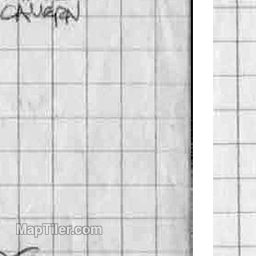 CAVERN
MapTiler.com